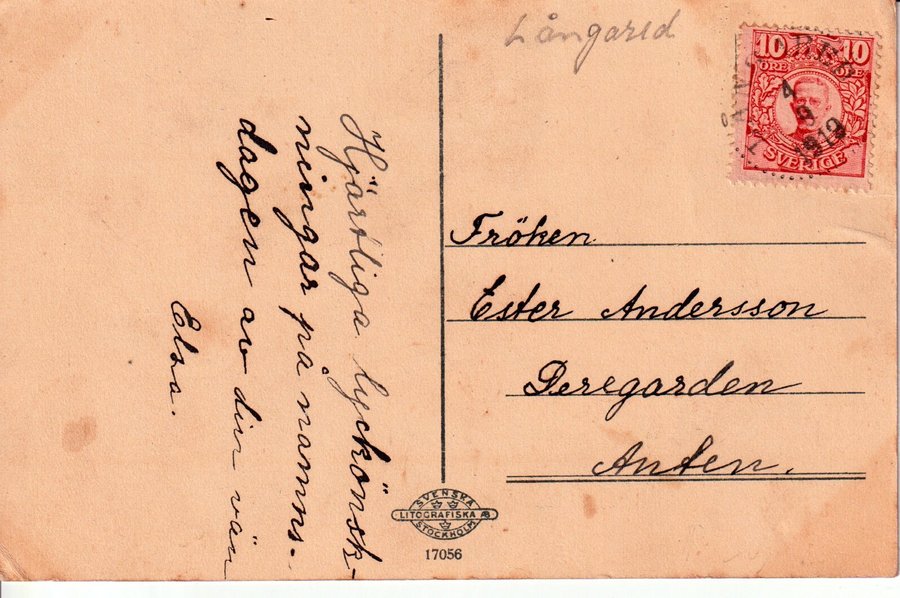 Långared
10 10
ÖRE ÖRE
4
9
1919
SVERIGE
Hjärtliga lyckönsk-
ningar på namns-
dagen av din vän
Elsa.
Fröken
Ester Andersson
Peregarden
Anten.
SVENSKA
LITOGRAFISKA AB
STOCKHOLM
17056